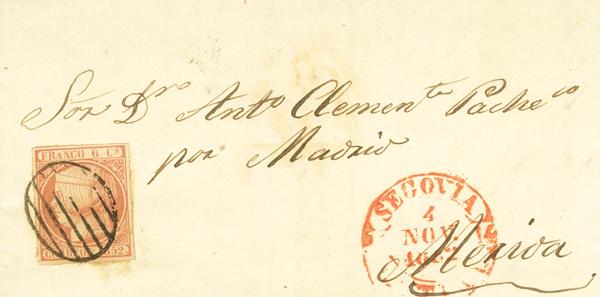 Sor Dn Anto Clemente Pacheco
por Madrid
FRANCO 6 Cs
1852.
SEGOVIA
4
NOV.
Merida